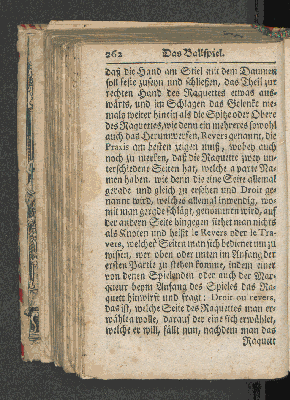 262 Das Ballspiel.
daß die Hand am Stiel mit dem Daumen
soll feste zuseyn und schließen, das Theil zur
rechten Hand des Raquettes etwas aus-
wärts, und im Schlagen das Gelenke nie-
mals weiter hin ein als die Spitze oder Obere
des Raquettes, wie denn ein mehreres sowohl
auch das Herumwerfen, Revers genannt, die
Praxis am besten zeigen muß, wobey auch
noch zu merken, daß die Raquette zwey un-
terschiedene Seiten hat, welche aparte Na-
men haben, wie denn die eine Seite allemal
gerade und gleich zu ersehen und Droit ge-
nannt wird, welches allemal inwendig, wo-
mit man gerade schlägt, genommen wird, auf
der andern Seite hingegen siehet man nichts
als Knoten und heißt le Revers oder le Tra-
vers, welches Seiten man sich bedienet um zu
wissen, wer oben oder unten im Anfang der
ersten Partie zu stehen komme, indem einer
von denen Spielenden oder auch der Mar-
queur beym Anfang des Spieles das Ra-
quett hinwirft und fragt: Droit ou revers,
das ist, welche Seite des Raquettes man er-
wählen wolle, darauf der eine sich erwählet,
welche er will, fällt nun, nachdem man das
Raquett